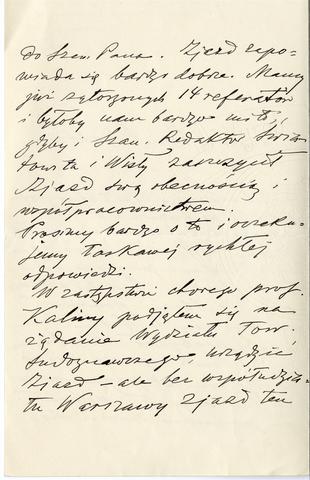 do Szan. Pana. Zjazd zapo-
wiada się bardzo dobrze. Mamy
już zgłoszonych 14 referatów
i byłoby nam bardzo miło,
gdyby i Szan. Redaktor Świa-
towita i Wisły zaszczycił
Zjazd swą obecnością i
współpracownictwem.
Prosimy bardzo o to i oczeku-
jemy łaskawej rychłej
odpowiedzi.
W zastępstwie chorego prof.
Kaliny podjąłem się na
żądanie Wydziału Tow.
Ludoznawczego, urządzić
Zjazd – ale bez współudzia-
łu Warszawy Zjazd ten